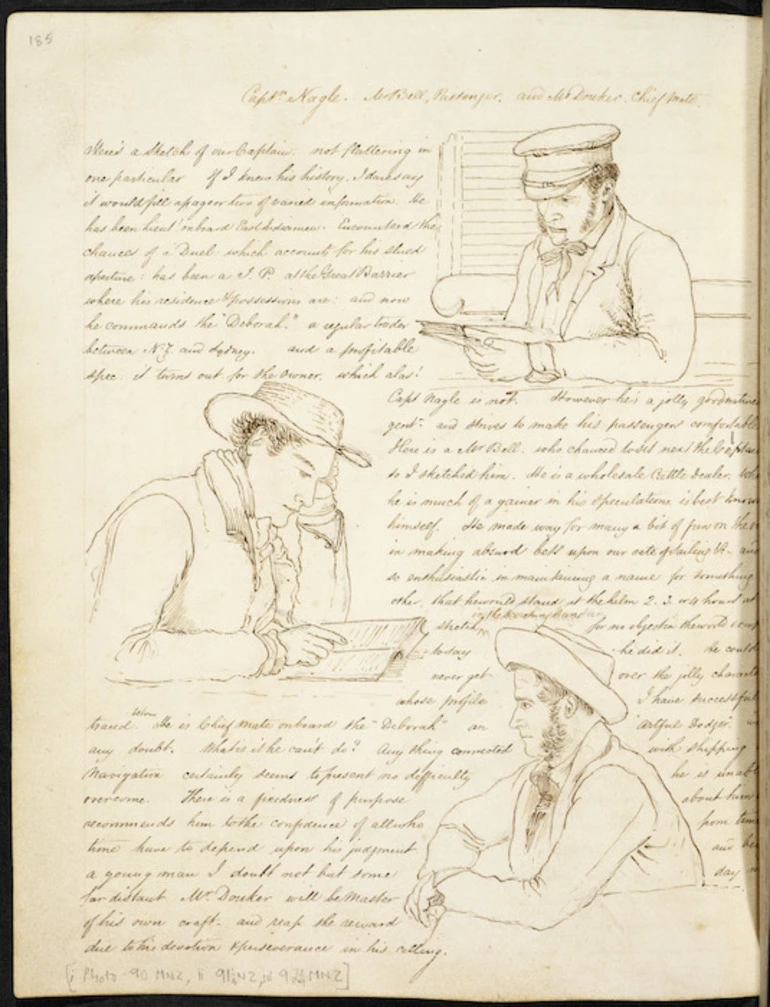 185
Captn Nagle. Mr Bell, Passenger, and Mr Douker. Chief Mate.
Here's a sketch of our Captain: not flattering in
one particular If I knew his history, I dare say
it would fill a page or two of varied information. He
has been lieut onboard East Indiamen. Encountered the
chances of a Duel which accounts for his
aperture: has been a J. P. at the Great Barrier
where his residence & possessions are: and now
he commands the "Deborah." a regular trader
between N.Z. and Sydney. and a profitable
spec. it turns out for the owner. which alas!
Capt Nagle is not. However he's a jolly goodnatured
gent: and strives to make his passengers comfortable
Here is a Mr Bell. who chanced to sit near the Captain
so I sketched him. He is a wholesale Cattle dealer.
he is much of a gainer in his speculations is best known
himself. He made way for many a bit of fun on the
in making absurd bets upon our rate of sailing &c. and
so enthusiastic in maintaining a name for something
other, that he would stand at the helm 2. 3. or 4 hours at
stretch in the for no object in the world
to say he did it. he could
never get over the jolly
whose profile I have successful
trand. He is Chief Mate onboard the "Deborah" an "Artful Dodger"
any doubt. What is it he can't do? Any thing connected with shipping
Navigation certainly seems to present no difficulty he is
overcome. There is a fixedness of purpose about him
recommends him to the confidence of all who from
time have to depend upon his judgment and
a young man I doubt not but some day
far distant Mr. Douker will be Master
of his own craft. and reap the reward
due to his devotion & perseverance in his calling.
[i Photo 90 MNZ, ii MNZ, iii MNZ]